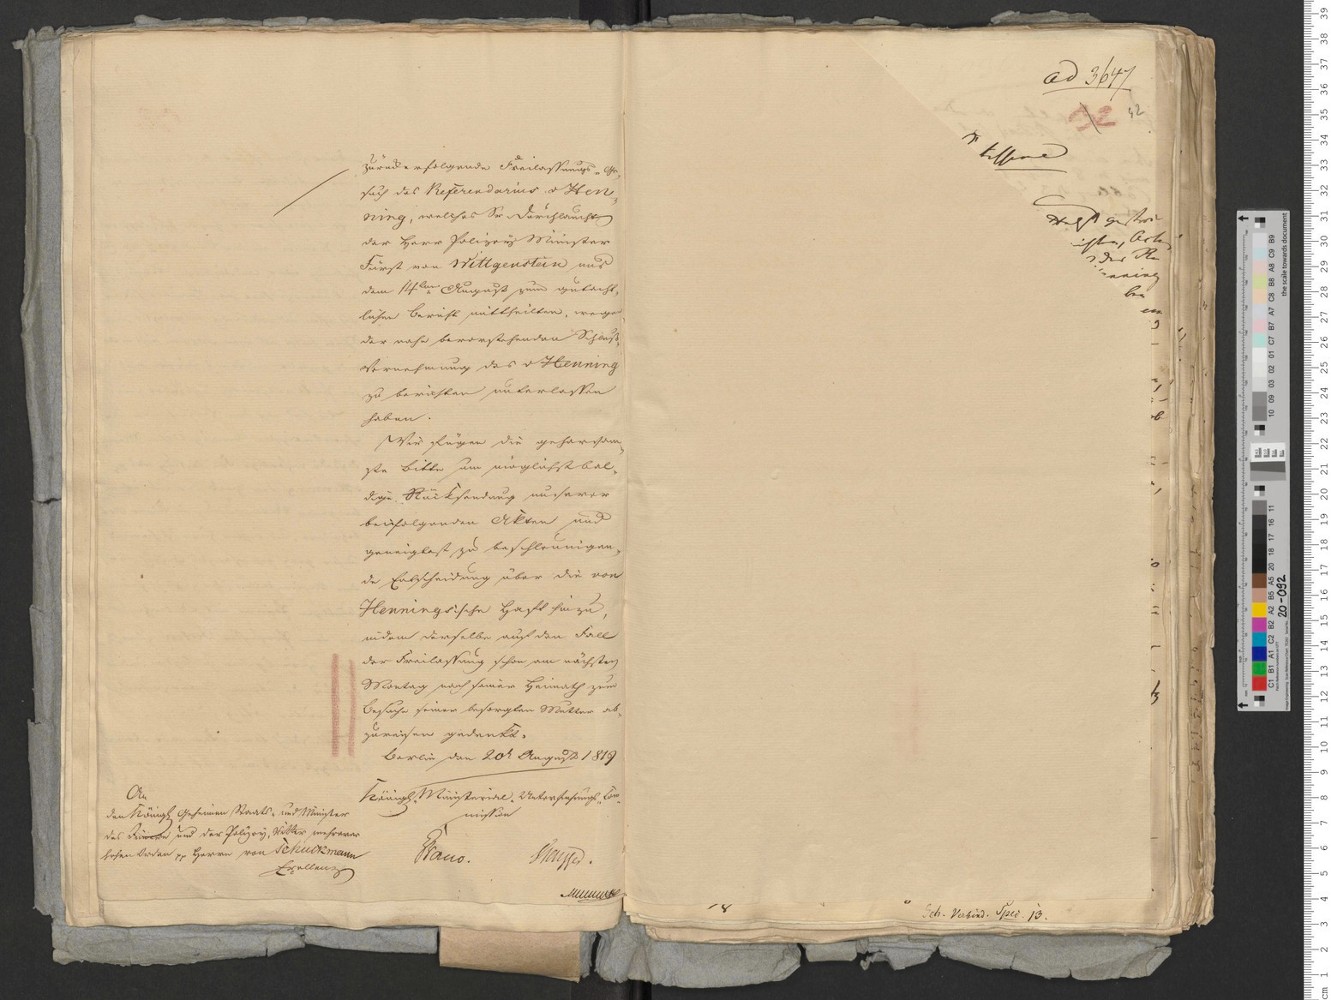 zurück erfolgende Freilassungs-Ge-
such des Referendarius v Hen-
ning, welches Sr Durchlaucht
der Herr Polizey Minister
Fürst von Wittgenstein uns
dem 14ten August zum gutacht-
lichen Bericht mittheilten, wegen
der nahe bevorstehenden Schluß-
vernehmung des v Henning
zu berichten unterlassen
haben.
Wir fügen die gehorsam-
ste Bitte um möglichst bal-
dige Rücksendung unserer
beifolgenden Akten und
geneigtest zu beschleunigen-
de Entscheidung über die von
Henningsche Haft hinzu,
indem derselbe auf den Fall
der Freilassung schon am nächsten
Montag nach seiner Heimath zum
Besuche seiner besorgten Mutter ab-
zureisen gedenkt.
Berlin den 20t August 1819
Königl. Ministerial-Untersuchungs-Com-
mission
An
den Königl Geheimen Staats- und Minister
des Innern und der Polizey, Ritter mehrerer
hohen Orden pp Herrn von Schuckmann
Excellenz
ad 3647
42
Henning
18
20-092
the scale towards document